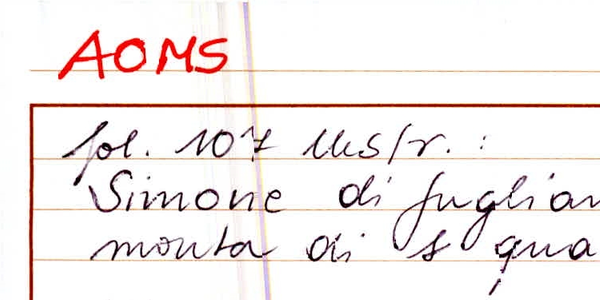 AOMS
fol. 107 lks/r. :
Simone di fuglian
monta di s qua